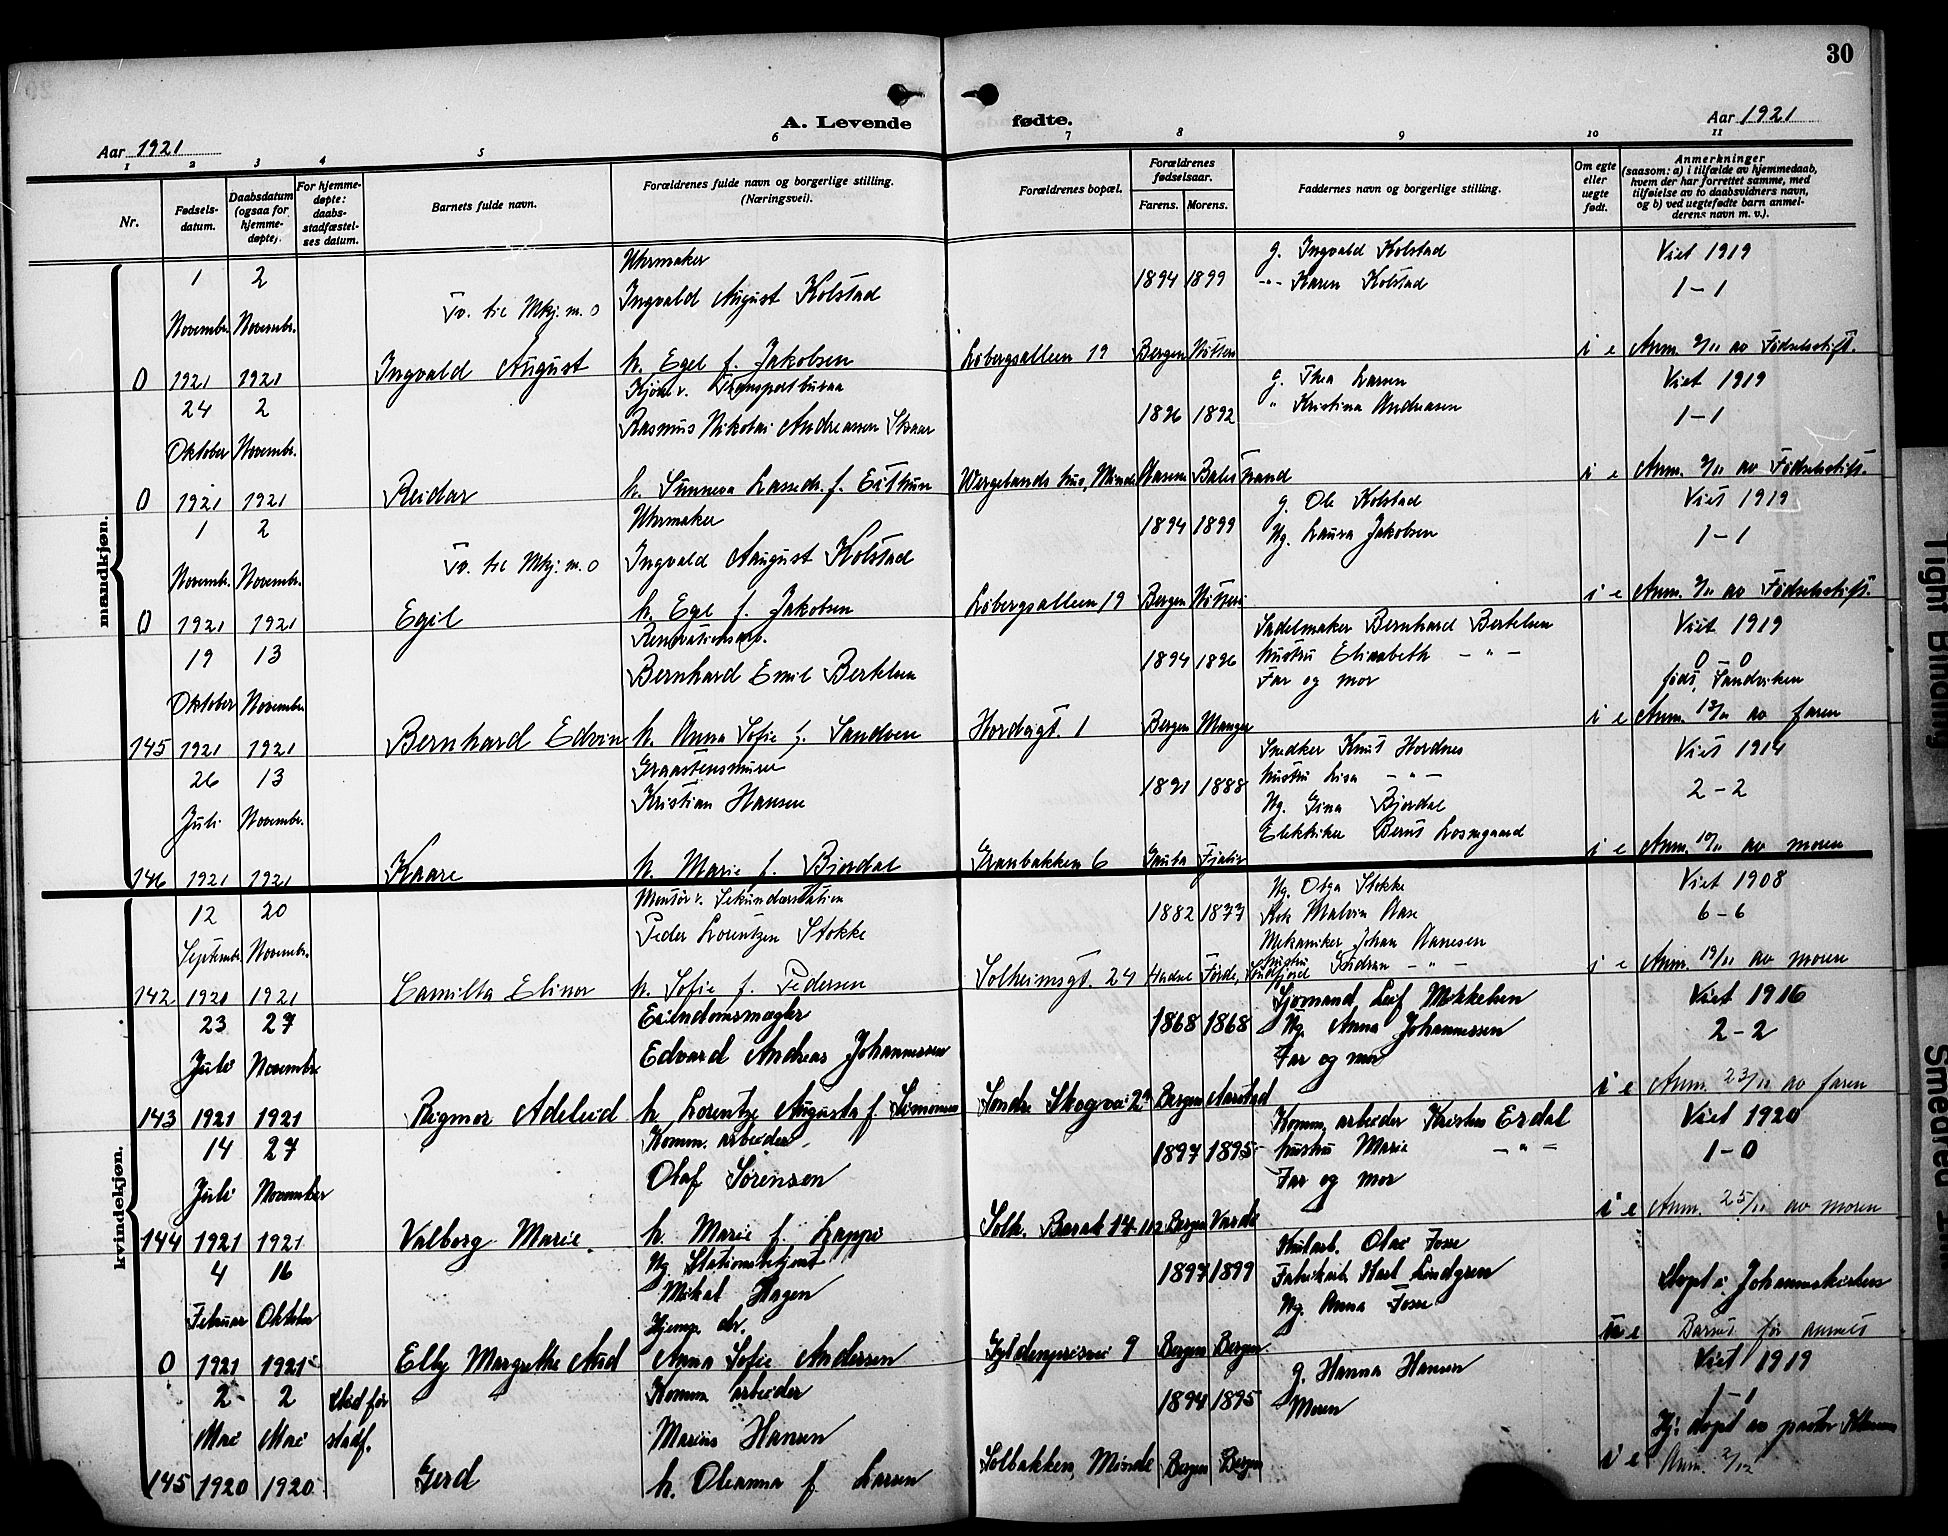 30
A. Levende fødte.
Aar 1921
Aar 1921
1 2 3 4 5 6 7 8 9 10 11
Nr.
Fødsels-
datum.
Daabsdatum
(ogsaa for
hjemme-
døpte).
For hjemme-
døpte:
daabs-
stadfæstel-
ses datum.
Barnets fulde navn.
Forældrenes fulde navn og borgerlige stilling.
(Næringsvei).
Forældrenes bopæl.
Forældrenes
fødselsaar.
Farens. Morens.
Faddernes navn og borgerlige stilling.
Om egte
eller
uegte
født.
Anmerkninger
(saasom: a) i tilfælde av hjemmedaab,
hvem der har forrettet samme, med
tilføielse av to daabsvidners navn,
og b) ved uegtefødte barn anmel-
derens navn m. v.).
mandkjøn.
Uhrmaker
g. Ingvald Kolstad
Viet 1919
1 2
Tv. til Mkj. m. 0
Ingvald August Kolstad
1894 1899
-"- Karen Kolstad
1-1
Novembr. Novembr.
0 1921 1921 Ingvald August h. Egel f. Jakobsen Løbergsalleen 19 Bergen i e Anm. 9/11 av Fødselsstift.
24 2
g. Thea Larsen
Viet 1919
Rasmus Nikolai Andreassen Skaar
1896 1892
" Kristina Andreasen
1-1
Oktober Novembr.
0 1921 1921 Reidar h. Sunneva Lassedr. f. Eithun Wergelands hus, Minde Balestrand i e Anm. 9/11 av Fødselsstift.
Uhrmaker
g. Ole Kolstad
Viet 1919
1 2
Tv. til Mkj. m. 0
Ingvald August Kolstad
1894 1899
Ug. Laura Jakobsen
1-1
Novembr. Novembr.
0 1921 1921 Egil h. Egel f. Jakobsen Løbergsalleen 19 Bergen i e Anm. 9/11 av Fødselsstift.
Renovationsarb.
Sadelmaker Bernhard Bertelsen
Viet 1919
19 13
Bernhard Emil Bertelsen
1894 1896
hustru Elisabeth -"-
0-0
Far og mor
født, Sandviken
Oktober November
145 1921 1921 Bernhard Edvin h. Anna Sofie f. Sandven Hordagt. 1 Bergen Manger i e Anm. 12/11 av faren
Graastensmurer
Snedker Knut Hordnes
Viet 1914
26 13
Kristian Hansen
1891 1888
hustru Lisa -"-
2-2
Ug. Gina Bjordal
Juli Novembr.
Elektriker Berns Losnegaard
146 1921 1921 Kaare h. Marie f. Bjordal Granbakken 6 Gaula Fjaler i e Anm. 10/11 av moren
kvindekjøn.
Montør v. Sekundærstation
Ug. Olga Stokke
Viet 1908
12 20
Peder Lorentzen Stokke
1882 1877
Malvin Aase
6-6
Septembr. Novembr.
Mekaniker Johan Aanesen
hustru Gudrun -"-
142 1921 1921 Camilla Elinor h. Sofie f. Pedersen Solheimsgt. 24 Førde, Søndfjord i e Anm. 19/11 av moren
Eiendomsmægler
Sjømand Leif Mikkelsen
Viet 1916
23 27
Edvard Andreas Johannessen
1868 1868
Ug. Anna Johannessen
2-2
Juli Novembr
Far og mor
143 1921 1921 Rigmor Adeleid h. Lorentze Augusta f. Simonsen Søndre Skogvei Bergen Aarstad i e Anm. 23/11 av faren
Komm. arbeider
Komm. arbeider Kristen Erdal
Viet 1920
14 27
Olaf Sørensen
1897 1895
hustru Marie -"-
1-0
Juli November
Far og mor
144 1921 1921 Valborg Marie h. Marie f. Lappi Solh. Barak 14 Bergen Vardø i e Anm. 25/11 av moren
Ug. Stationsbetjent
Olai Fosse
4 16
Mikal Hagen
1897 1899
Fabrikarb. Karl Lindgren
døpt i Johanneskirken
Februar Oktober
Hjemp. dr.
Ug. Anna Fosse
0 1921 1921 Elly Margrethe Aud Anna Sofie Andersen Gyldenprisvei 9 Bergen Bergen u e Barnet før anmeldt
Komm. arbeider
g. Hanna Hansen
Viet 1919
2 2 død før
1894 1895
Moren
1-1
Mai Mai stadf.
Marius Hansen
Hj. døpt av pastor
145 1920 1920 Gerd h. Oleanna f. Larsen Solbakken, Minde Bergen Bergen i e Anm. 2/12
Tight Binding
Smeared Ink